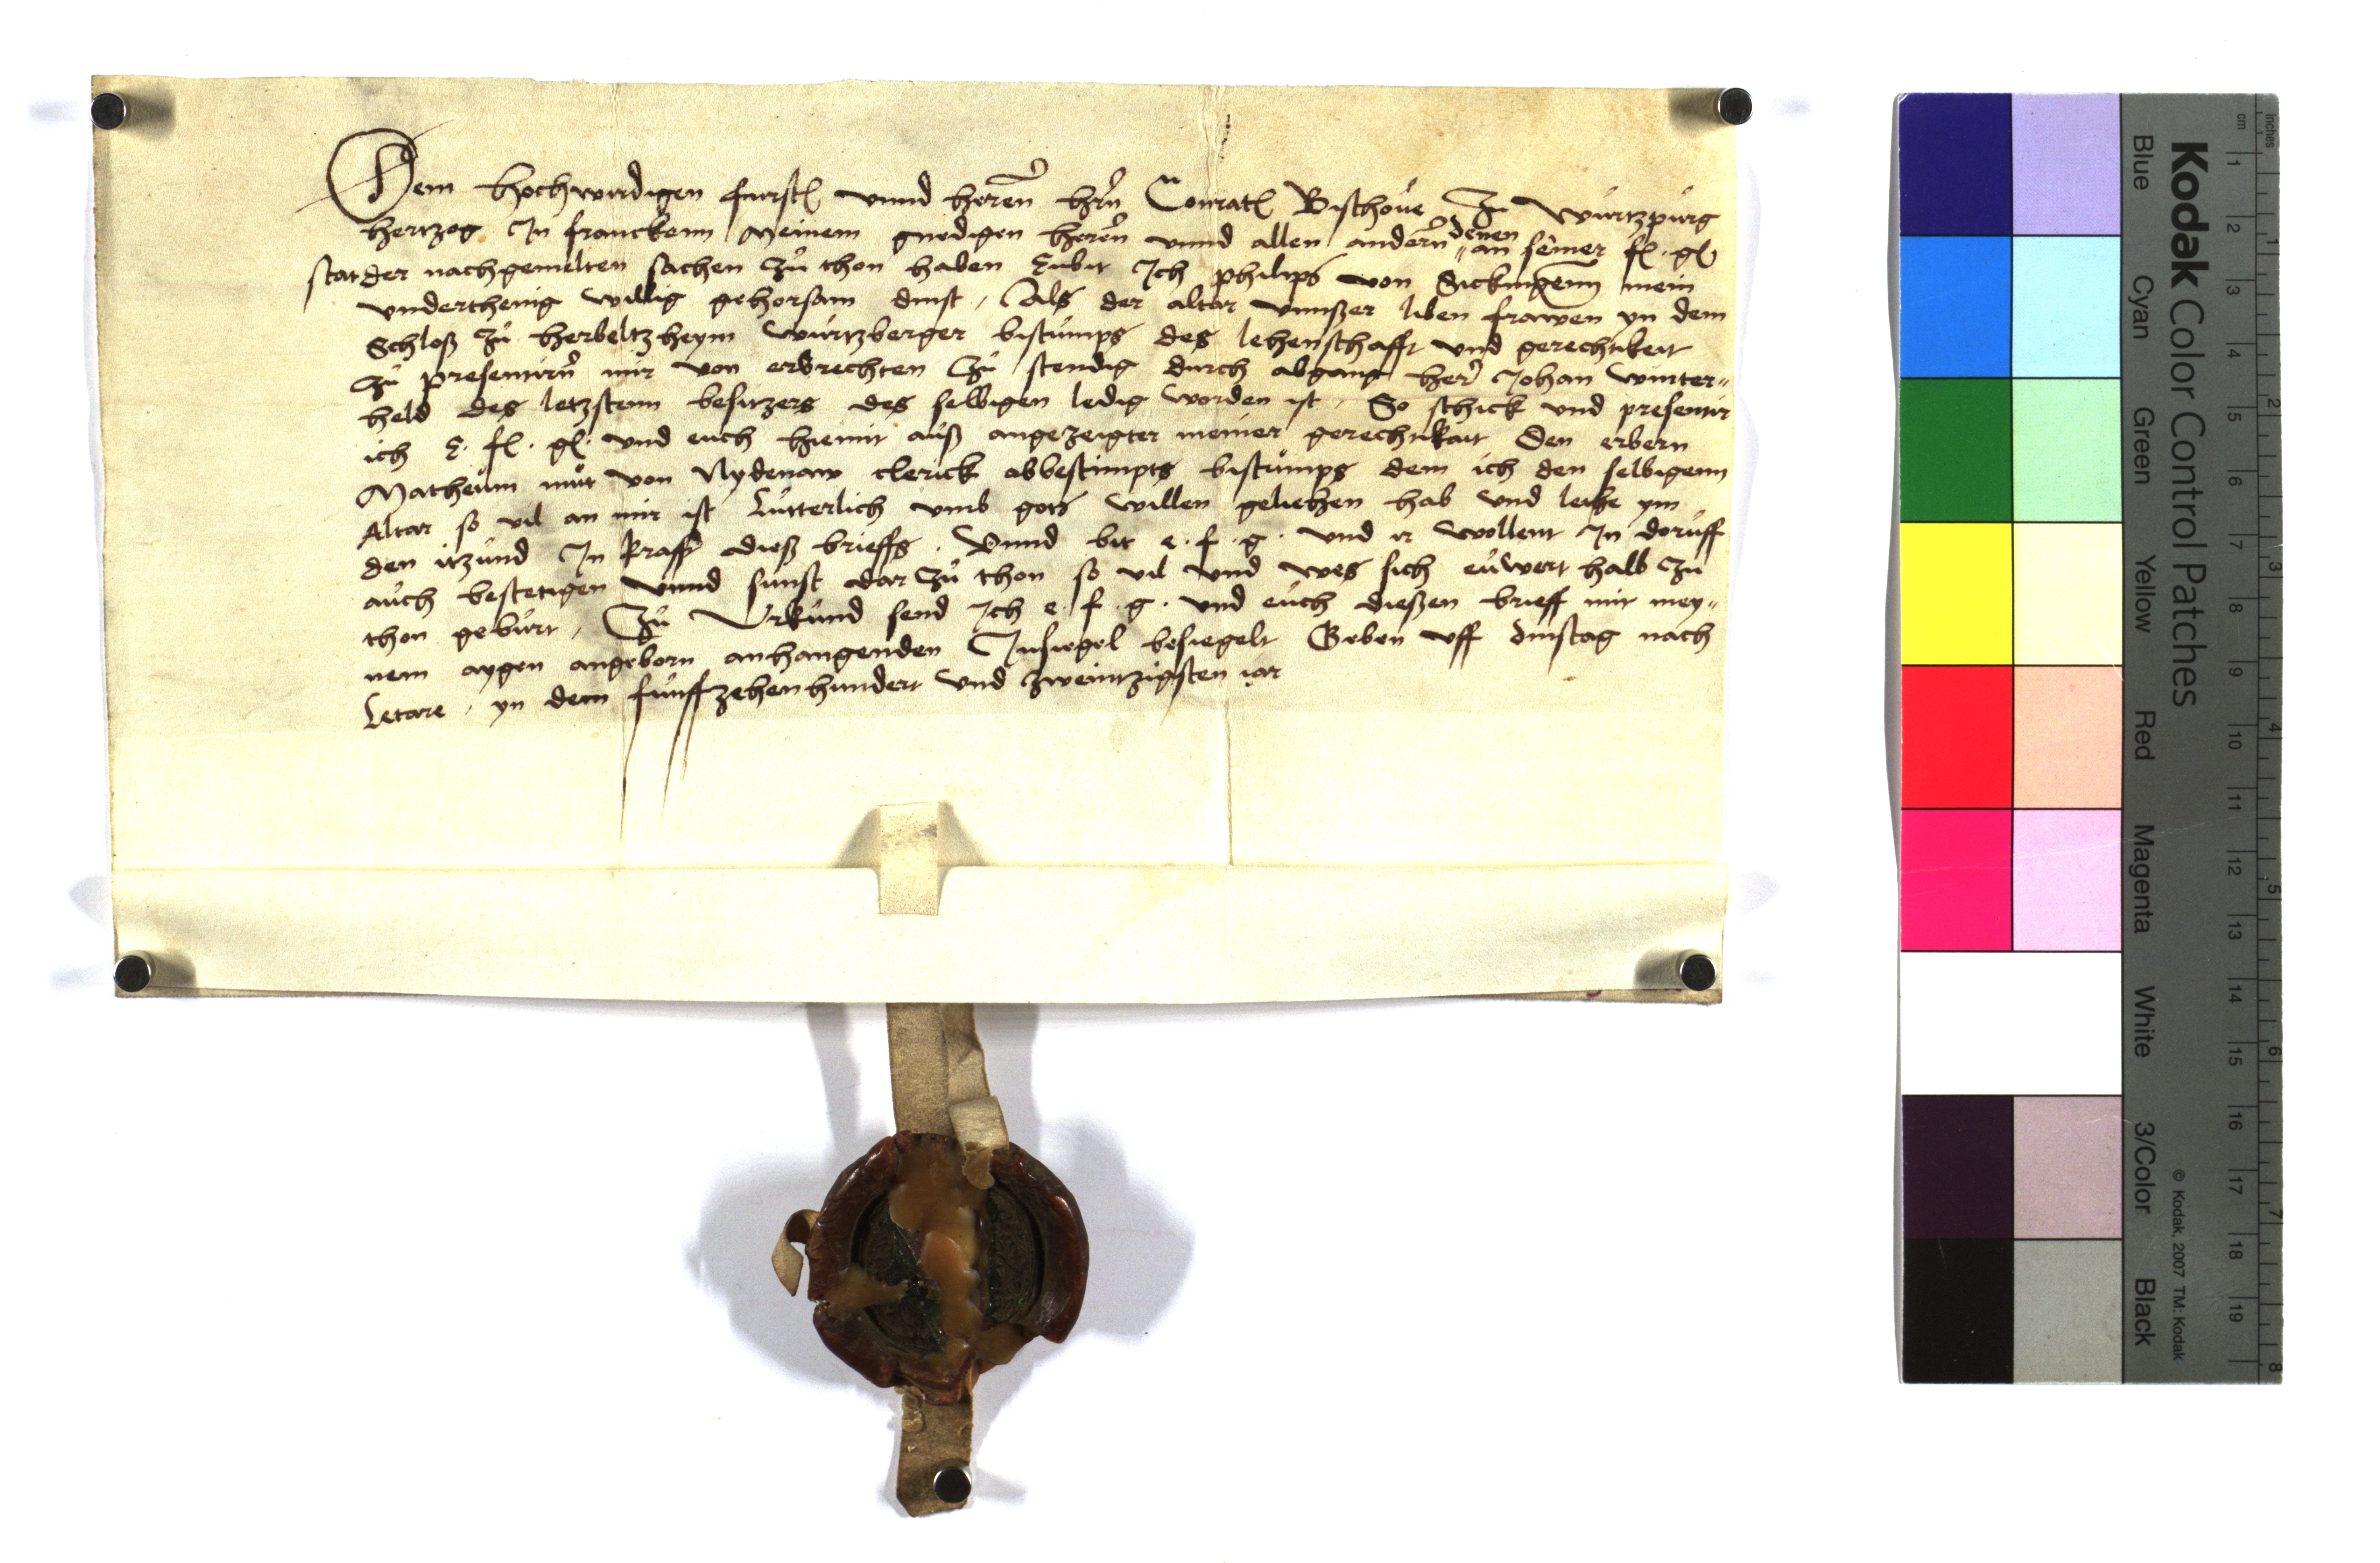 Dem hochwirdigen furst(en) vnnd heren hern Conrat(en) Bischove Zu Wurtzpurg
hertzog In franckenn Meinem gnedigen heren vnnd allen andern denen an seiner f. g.
stat der nachgemelten sachen Zu thon haben Enbit Ich philips von Sickingenn mein
vnderthenig willig gehorsam dinst, Als der altar vnnßer liben frawen yn dem
Schloß Zu herboltzheym Wurtzberger bistumps des lehenschafft vnd gerechtikeit
Zu presentirn mir von erbrechten Zu stendig durch abgang her Johan Winter„
held des letzstenn besitzers des selbigen ledig worden ist, So schick vnd presentir
ich E. f. g. vnd euch hiemit auß angezeigter meiner gerechtikait Den erbern
Matheum mut von Nydenaw clerick obbestimpts bistumps dem ich den selbigenn
Altar so vil an mir ist Lutterlich vmb gots willen geliehen hab vnd leihe ym
den itzund In krafft dieß brieffs. Vnnd bit e. f. g. vnd ir wollent In doruff
auch bestetigen vnnd sunst dar Zu thon so vil vnd wes sich euwert halb Zu
thon geburt, Zu Vrkund send Ich e. f. g. vnd euch dießen brieff mit mey„
nem aygen angeborn anhangenden Insiegel besiegelt Geben vff dinstag nach
Letare, yn dem funffzehenhundert vnd zweintzigsten iar
Kodak Color Control Patches
Blue Cyan Green Yellow Red Magenta White 3/Color Black
© Kodak, 2007 TM: Kodak
inches 1 2 3 4 5 6 7 8
cm 1 2 3 4 5 6 7 8 9 10 11 12 13 14 15 16 17 18 19